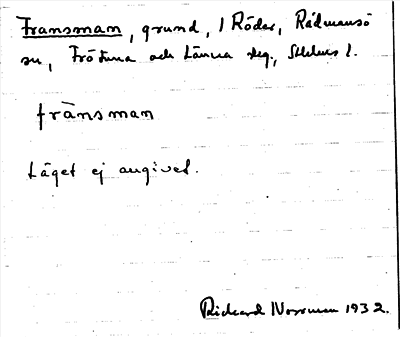 Fransman, grund, I Röder, Rådmansö
sn, Frötuna och Länna skg, Sthlms l.
frànsman
Läget ej angivet.
Rickard Norrman 1932.